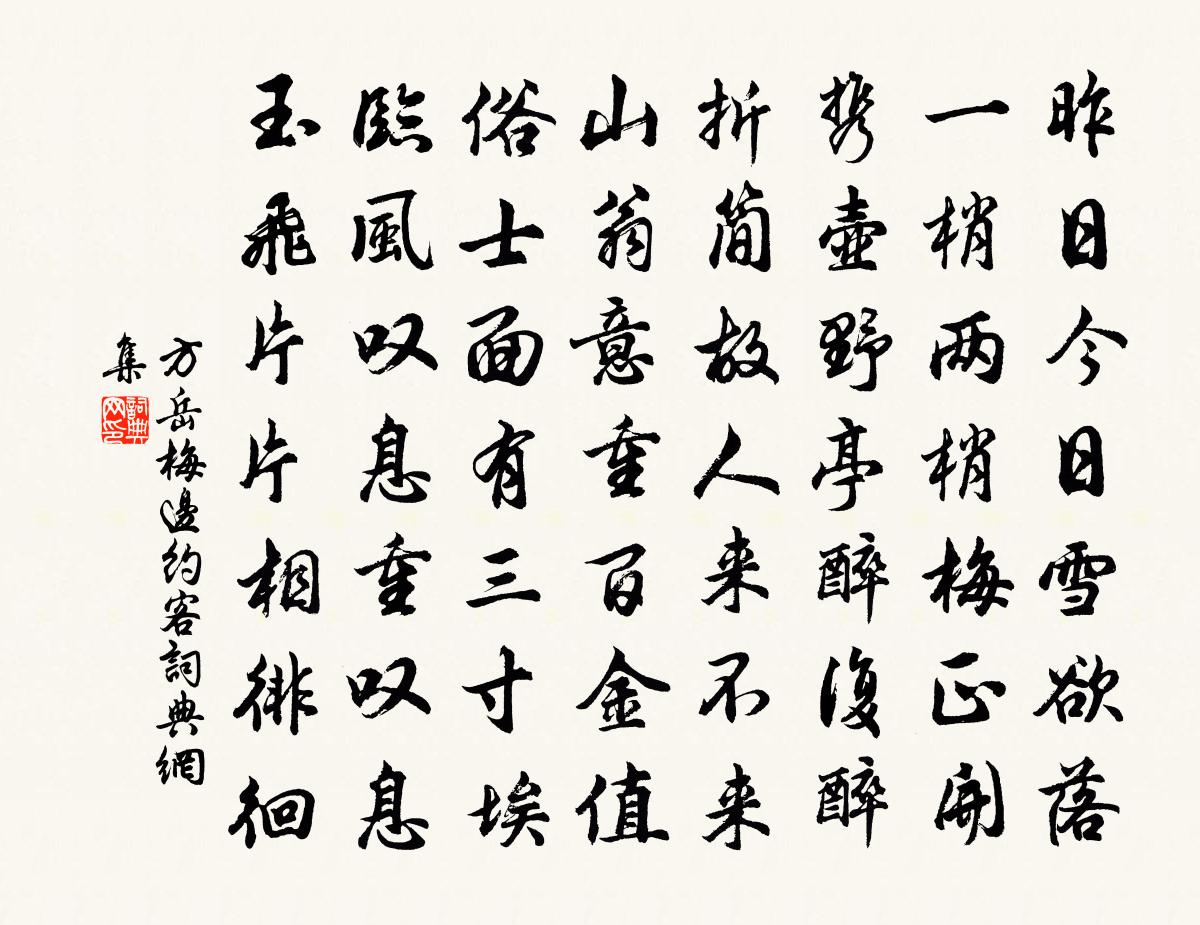 昨日今日雪欲落
一梢两梢梅正開
携壺野亭醉復醉
折簡故人来不来
山翁意重百金值
俗士面有三寸埃
臨風叹息重叹息
玉飛片片相徘徊
方岳梅邊約客詞典網
集
詞典
网印